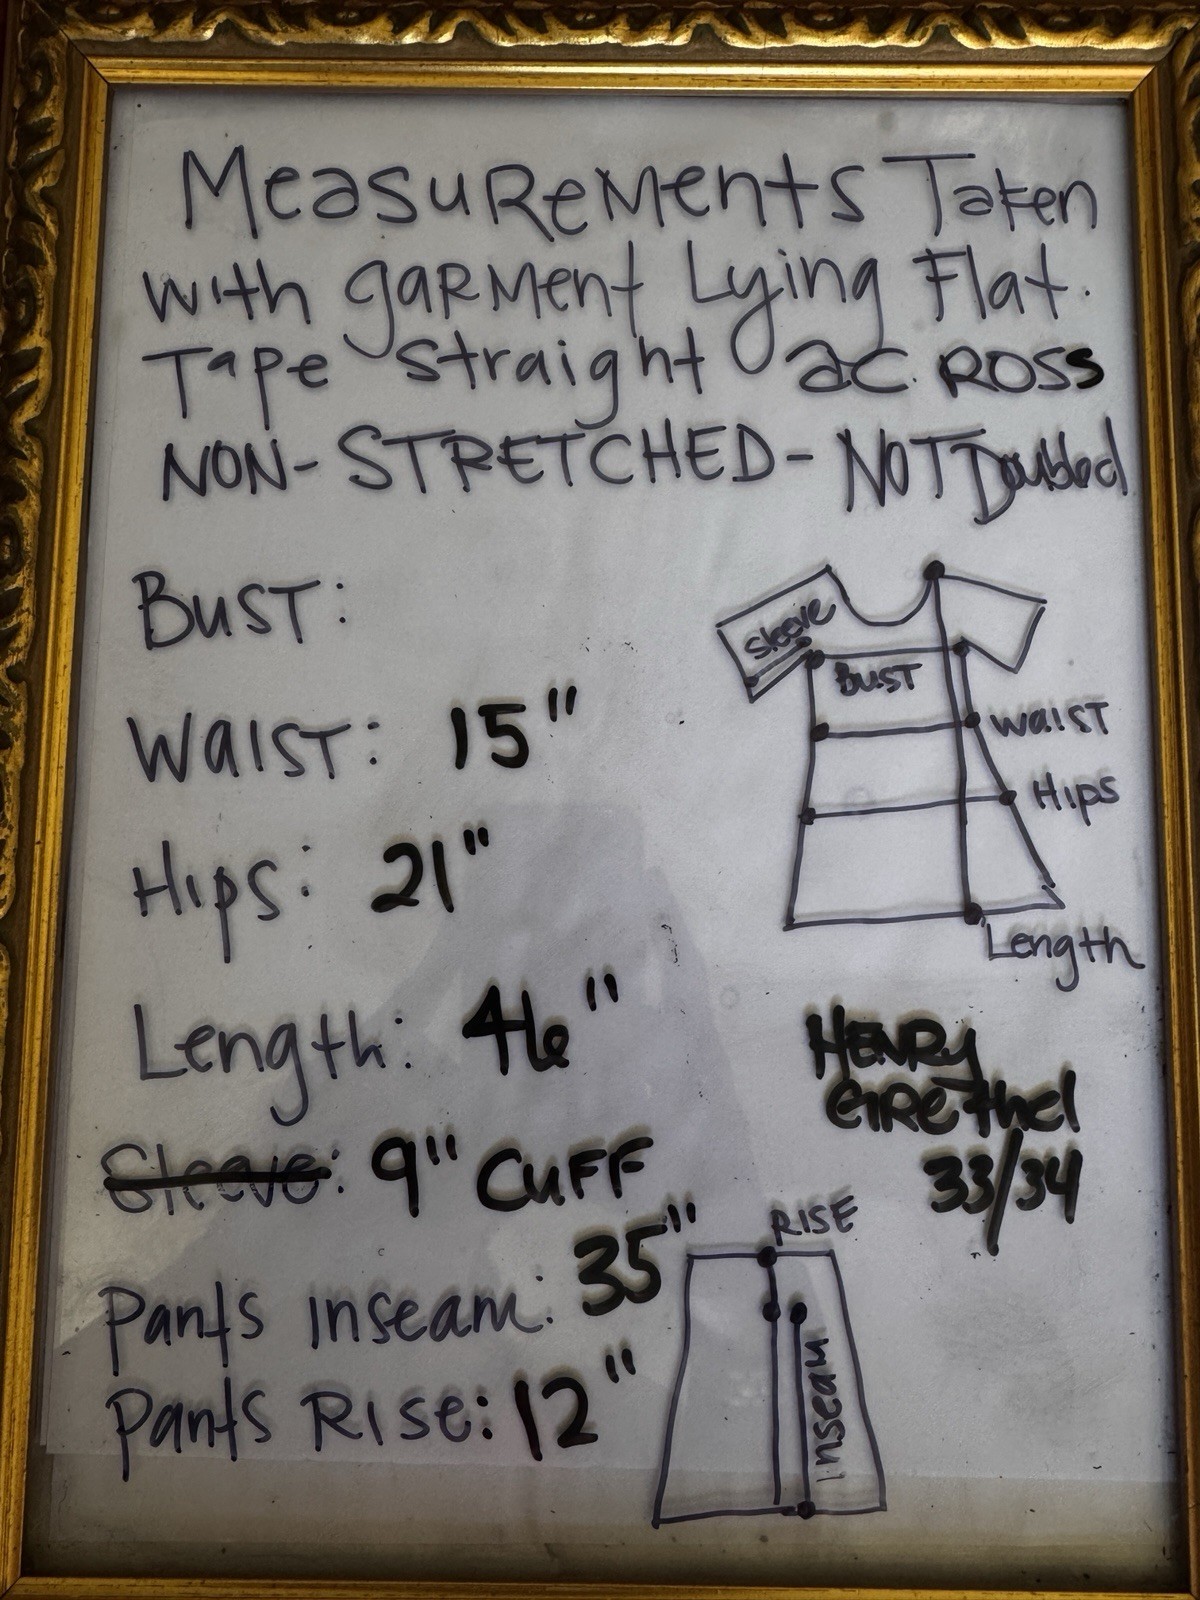 Measurements Taken
with garment Lying Flat.
Tape straight across
NON-STRETCHED-NOT Doubled
Bust:
Waist: 15"
Hips: 21"
Length: 46"
Sleeve: 9" CUFF
Pants inseam: 35"
Pants Rise: 12"
Sleeve
Bust
Waist
Hips
Length
HENRY
GIRethel
33/34
RISE
inseam